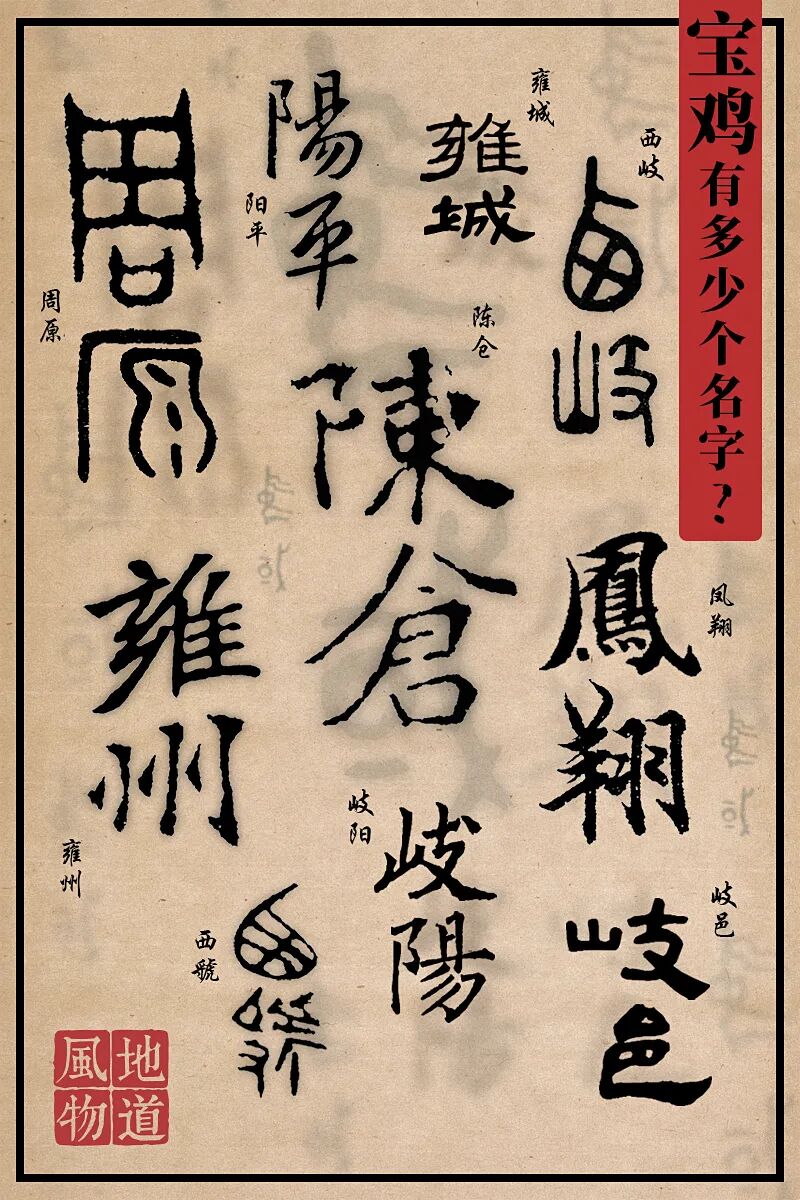 宝鸡有多少个名字？
西岐
西岐
雍城
雍城
陽平
阳平
周原
周原
陈仓
陳倉
鳳翔
凤翔
雍州
雍州
岐阳
岐陽
岐邑
岐邑
西虢
西虢
地道
風物